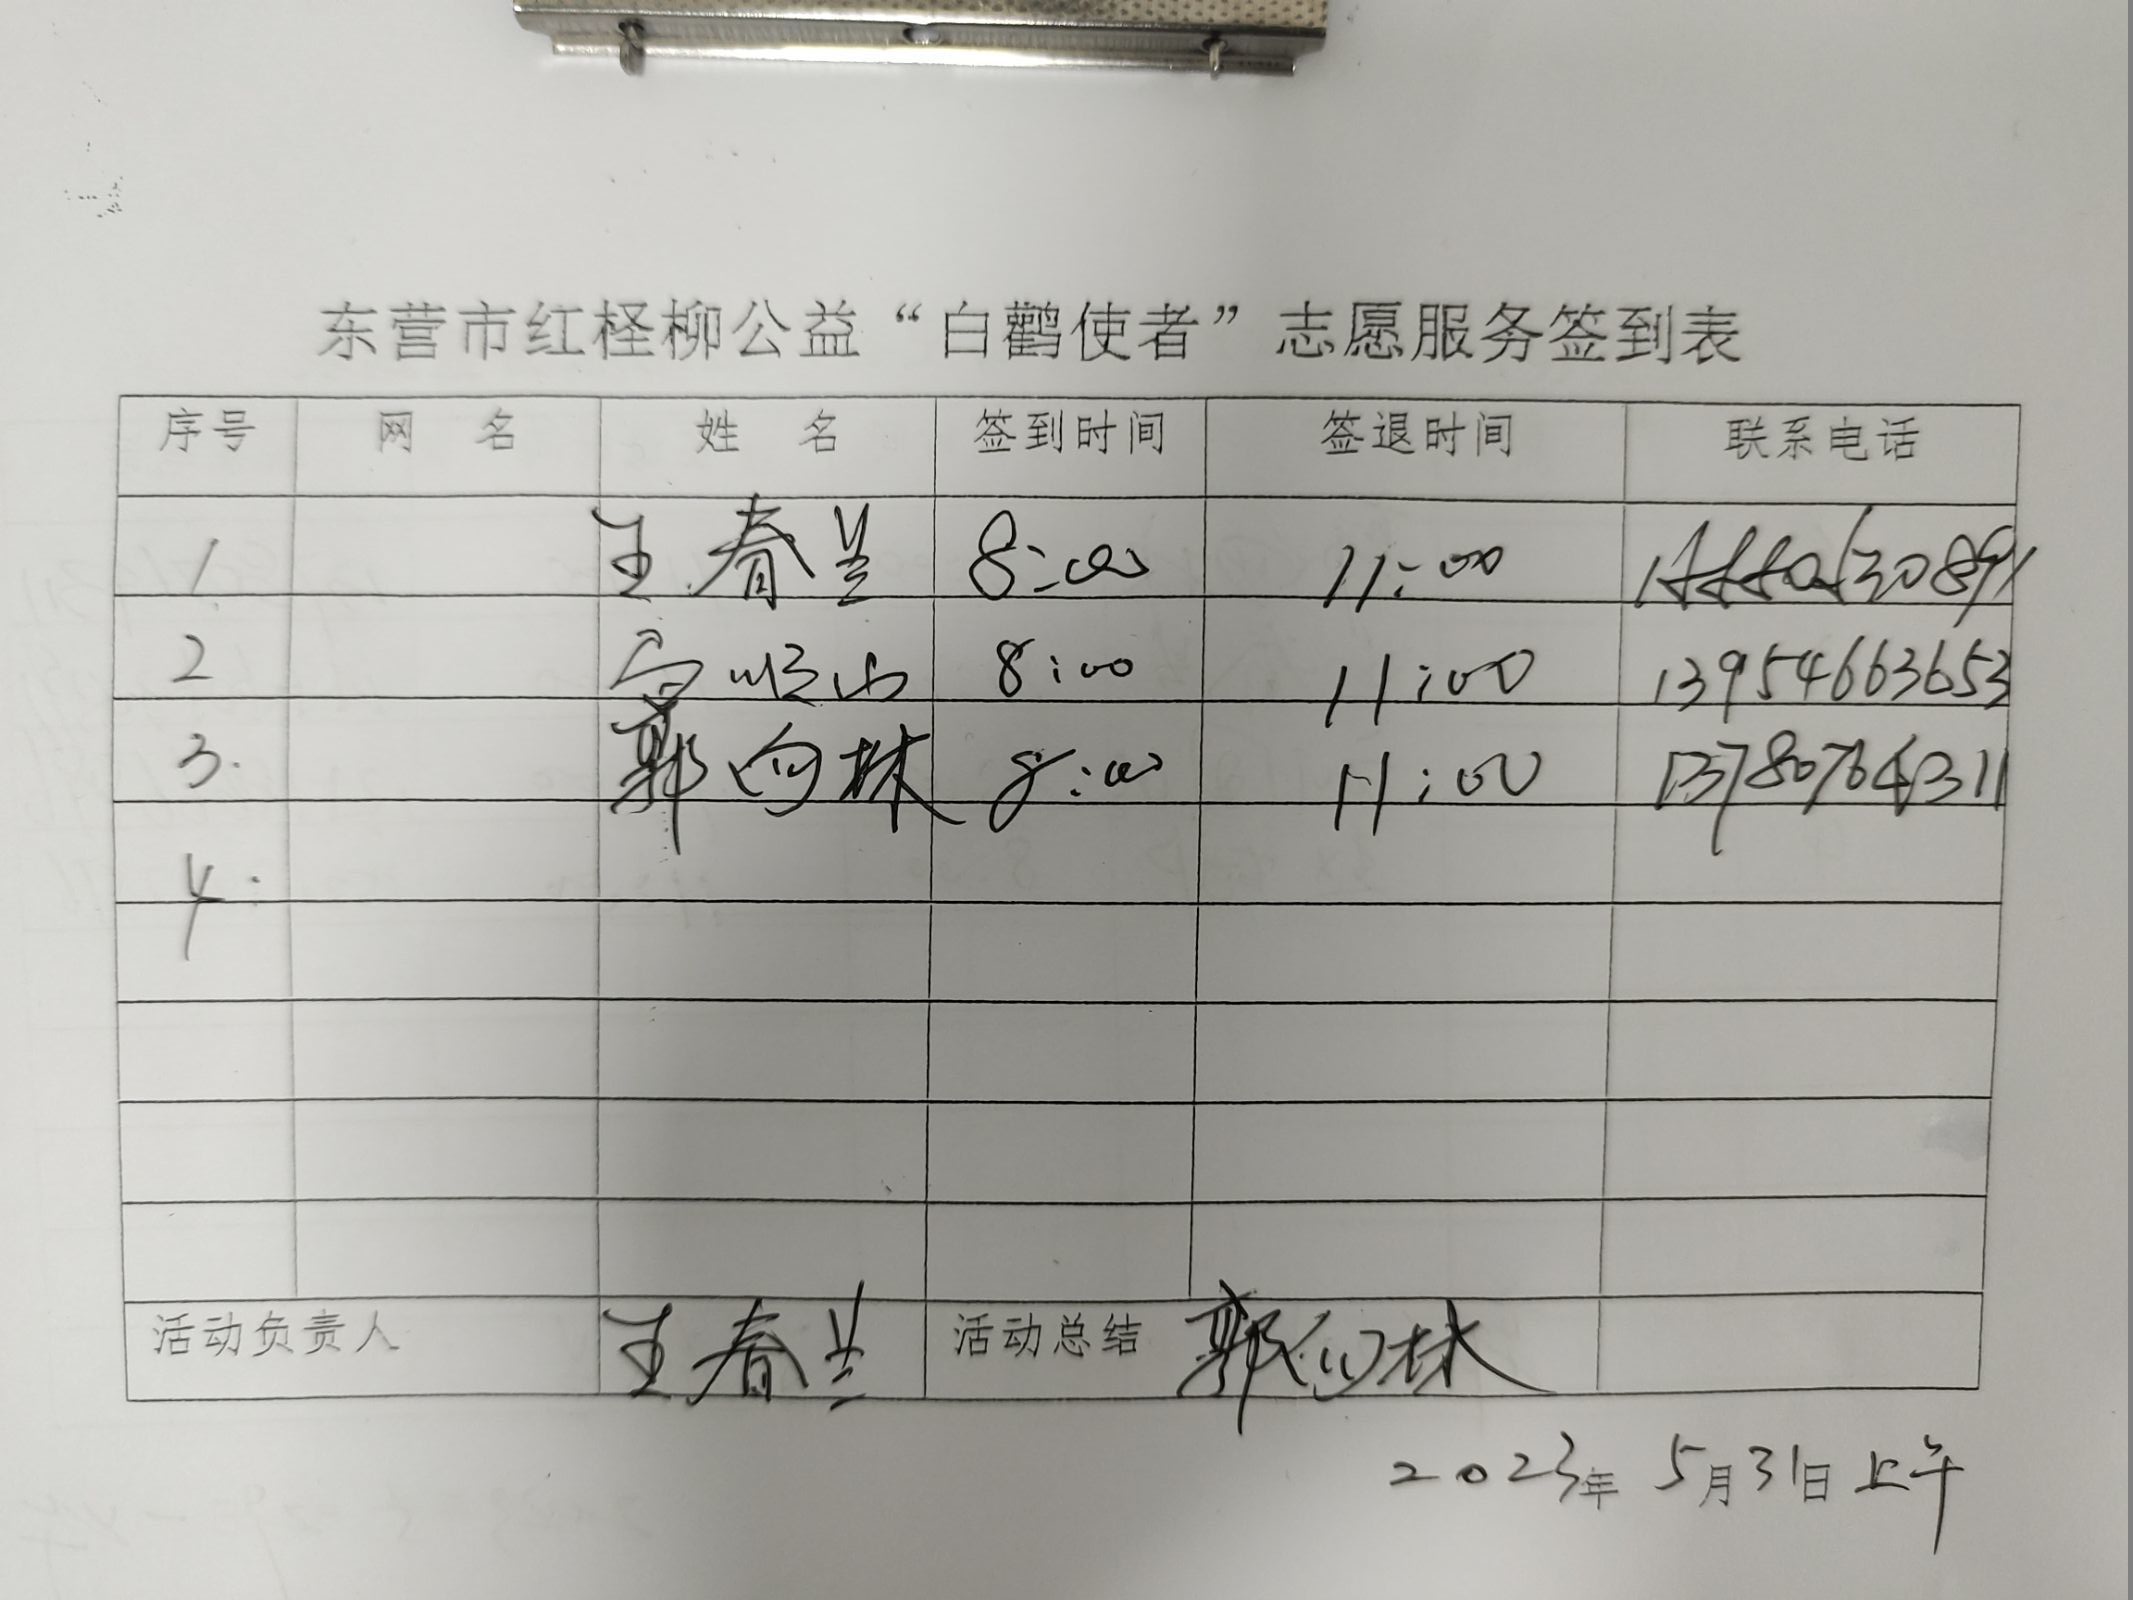 东营市红柽柳公益“白鹳使者”志愿服务签到表
序号 网 名 姓 名 签到时间 签退时间 联系电话
1 王春兰 8:00 11:00
2 8:00 11:00 13954663653
3. 郭向林 8:00 11:00 13780764311
4.
活动负责人 王春兰 活动总结 郭向林
2023年 5月31日上午